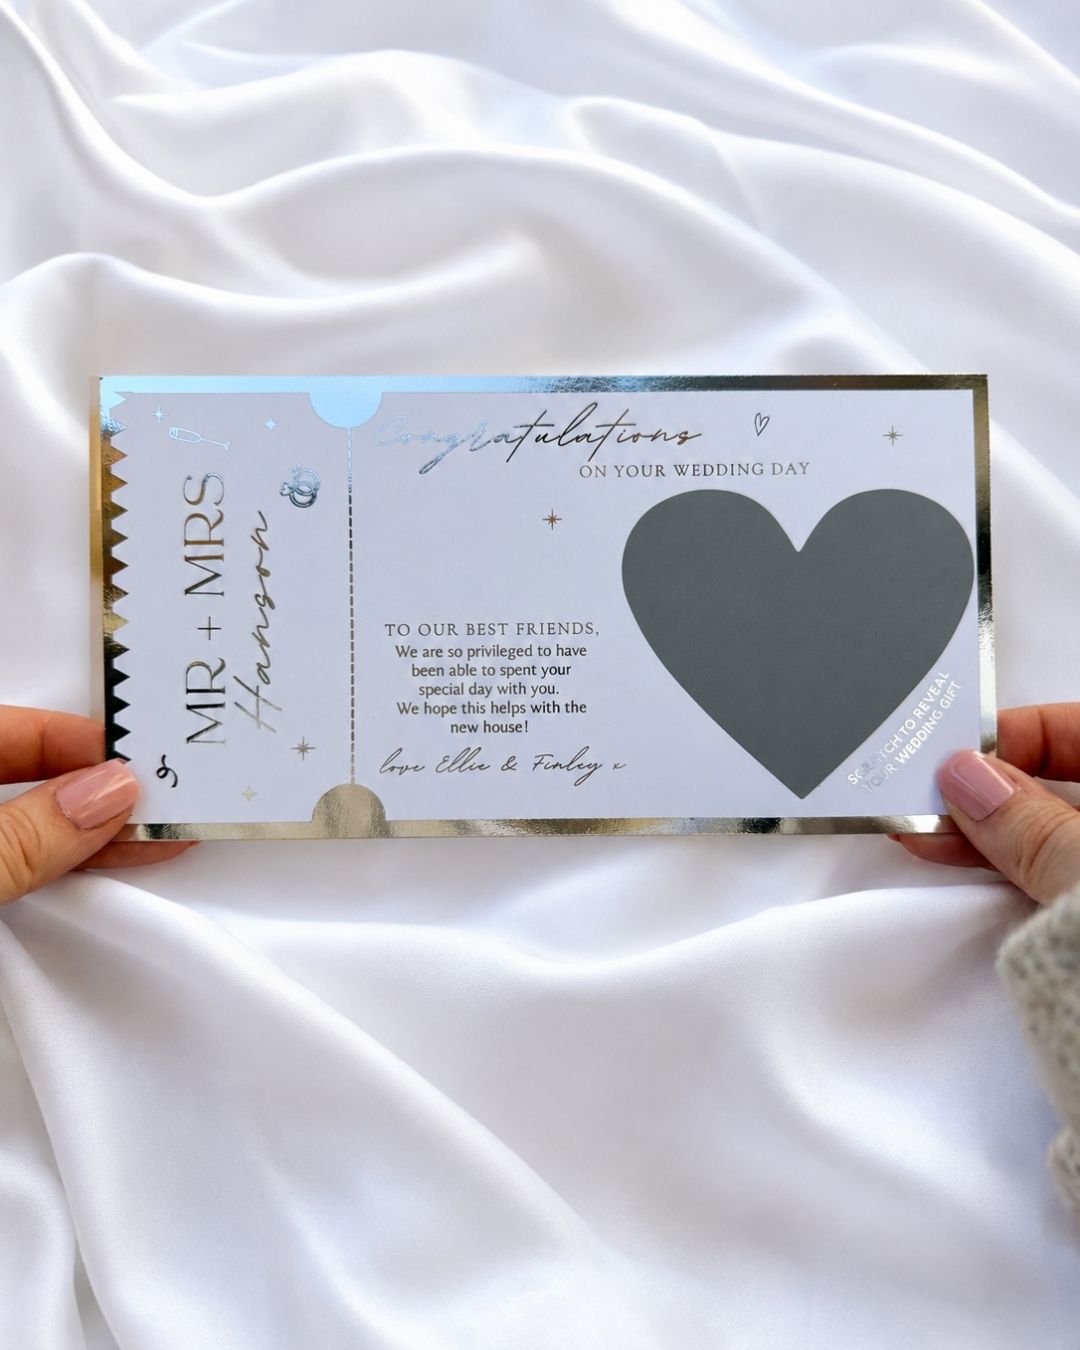 MR + MRS
Hanson
Congratulations
ON YOUR WEDDING DAY
TO OUR BEST FRIENDS,
We are so privileged to have
been able to spent your
special day with you.
We hope this helps with the
new house!
love Ellie & Finley x
SCRATCH TO REVEAL
YOUR WEDDING GIFT